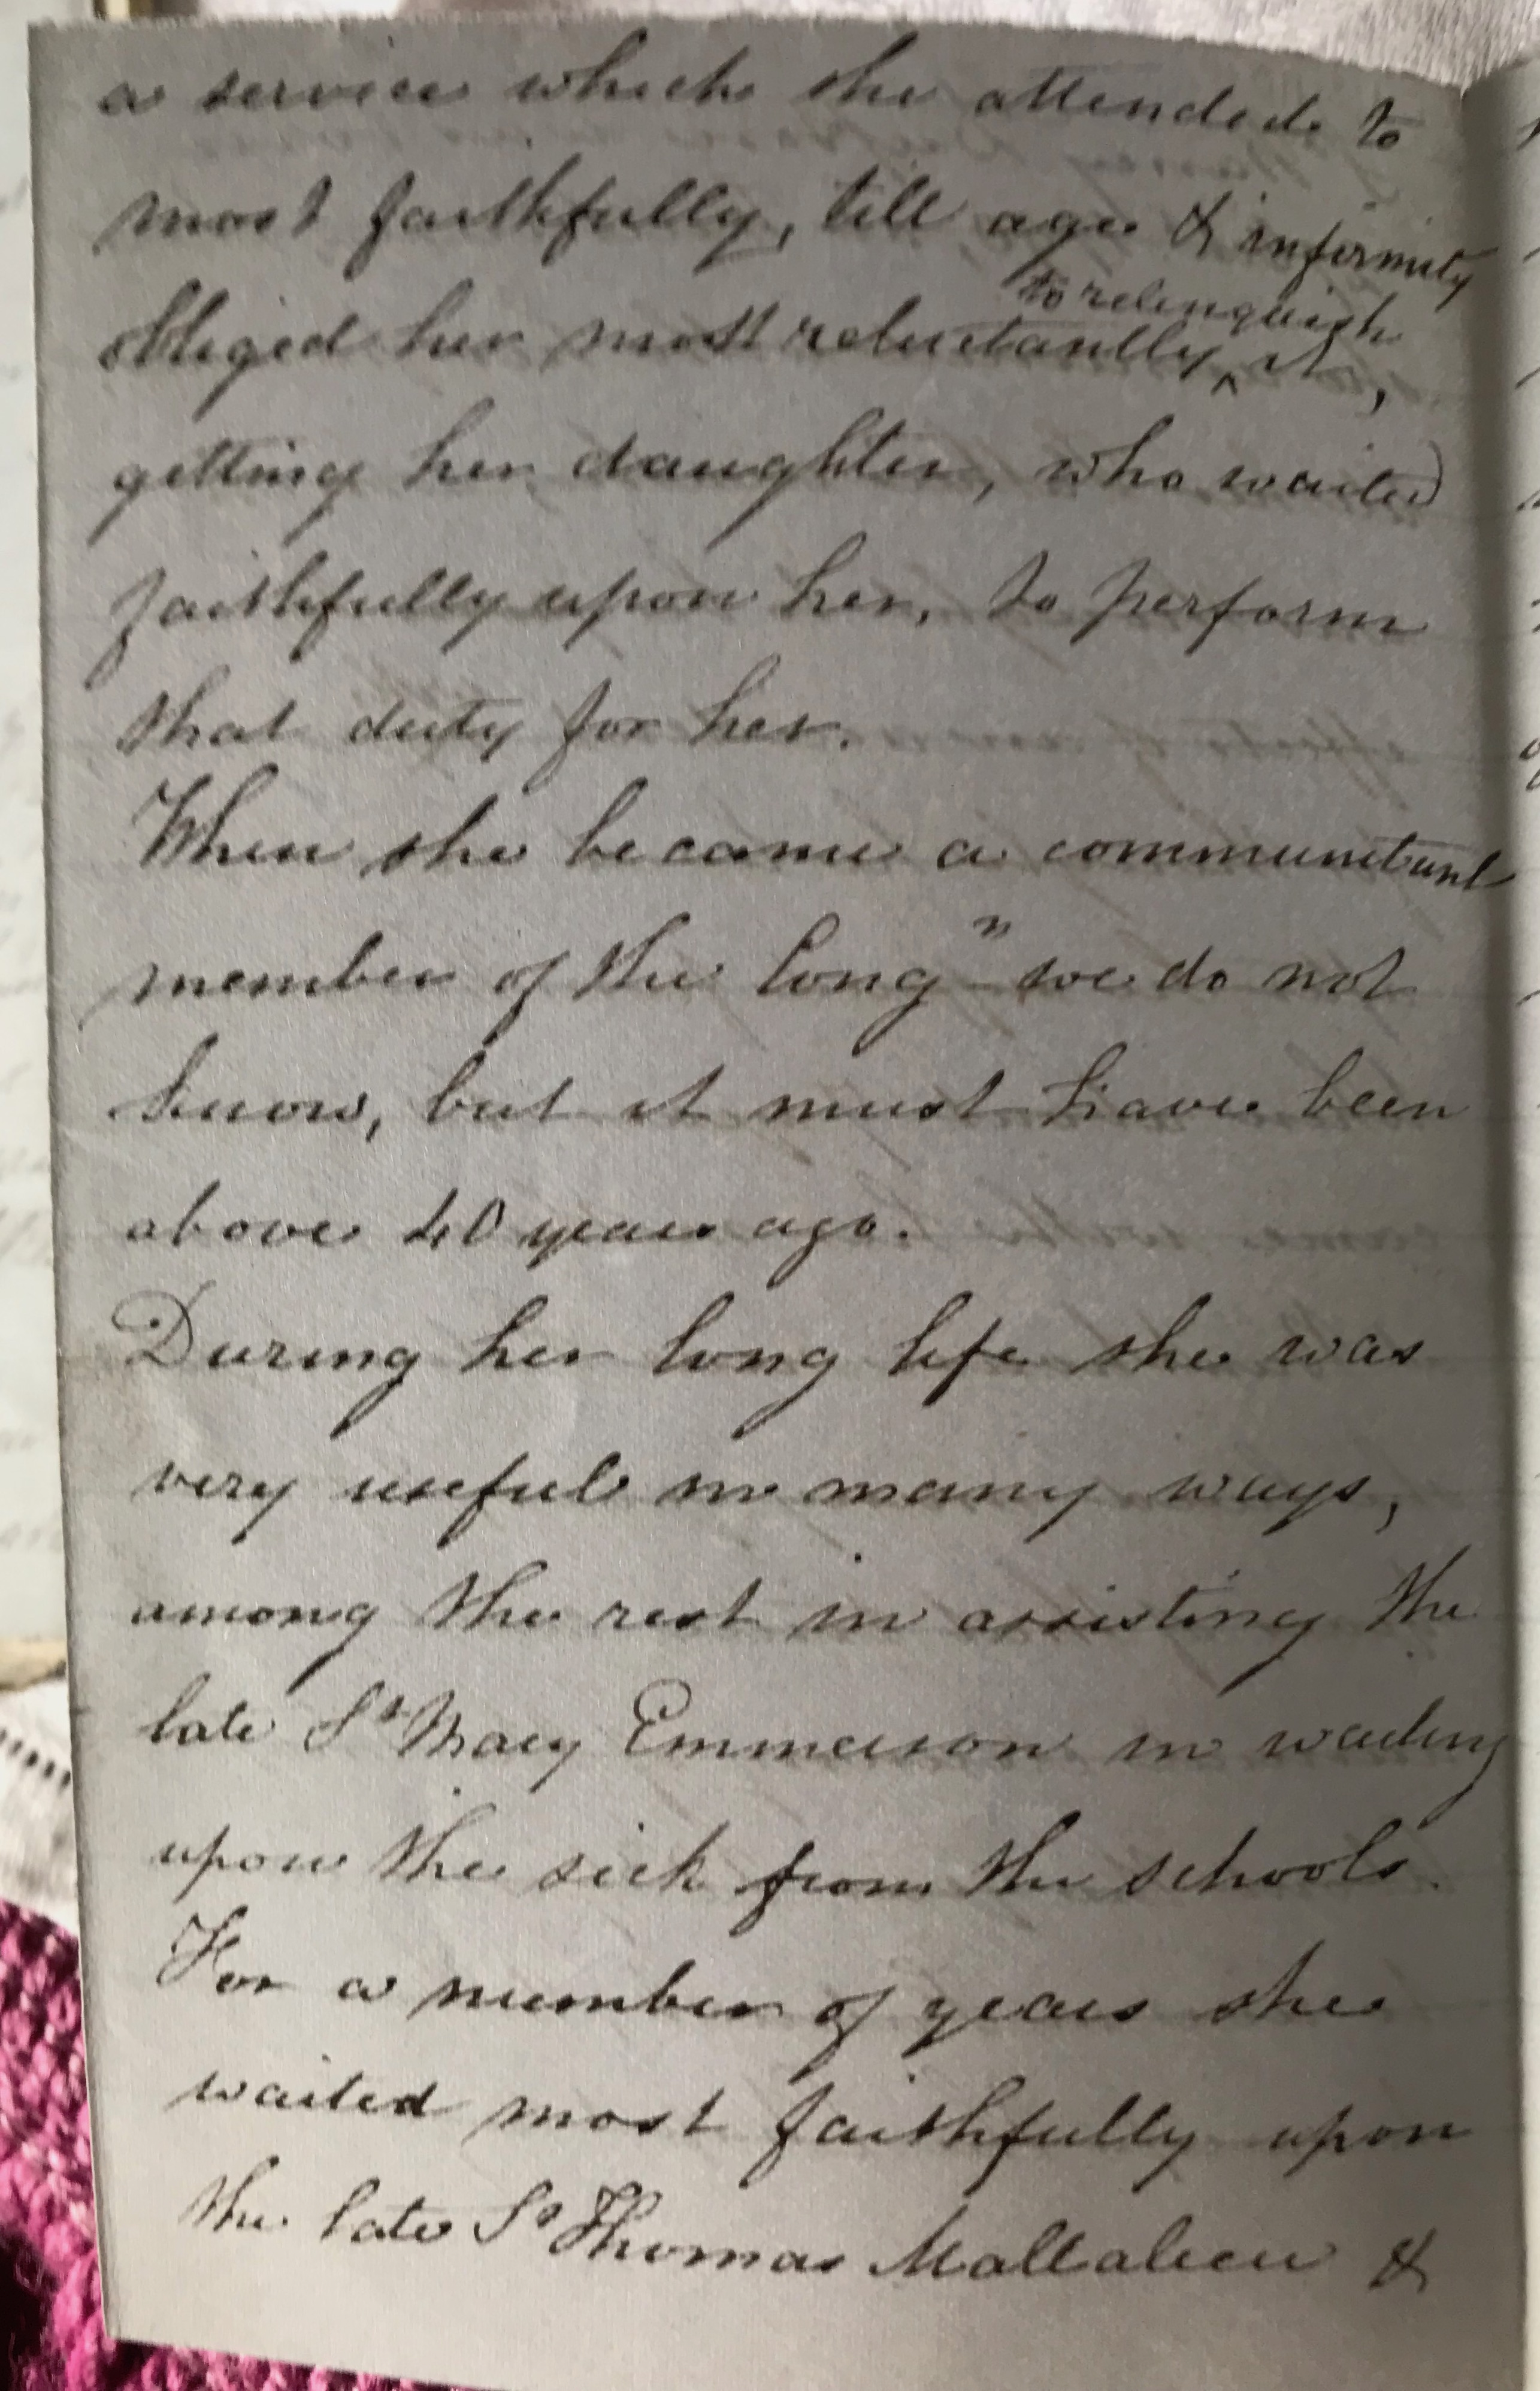 a service which she attended to
most faithfully, till age & infirmity
obliged her most reluctantly ^to relinquish it,
getting her daughter, who waited
faithfully upon her, to perform
that duty for her.
When she became a communicant
member of the Congn we do not
know, but it must have been
above 40 years ago.
During her long life she was
very useful in many ways,
among the rest in assisting the
late Sr Mary Emmerson in waiting
upon the sick from the schools.
For a number of years she
waited most faithfully upon
the late Sr Thomas Mallalieu &